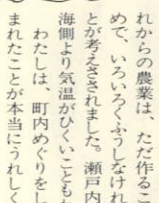 れからの農業は、ただ作るこ
めで、いろいろくふうしなけれ
とが考えさされました。瀬戸内
海側より気温がひくいことも
わたしは、町内めぐりをし
まれたことが本当にうれしく